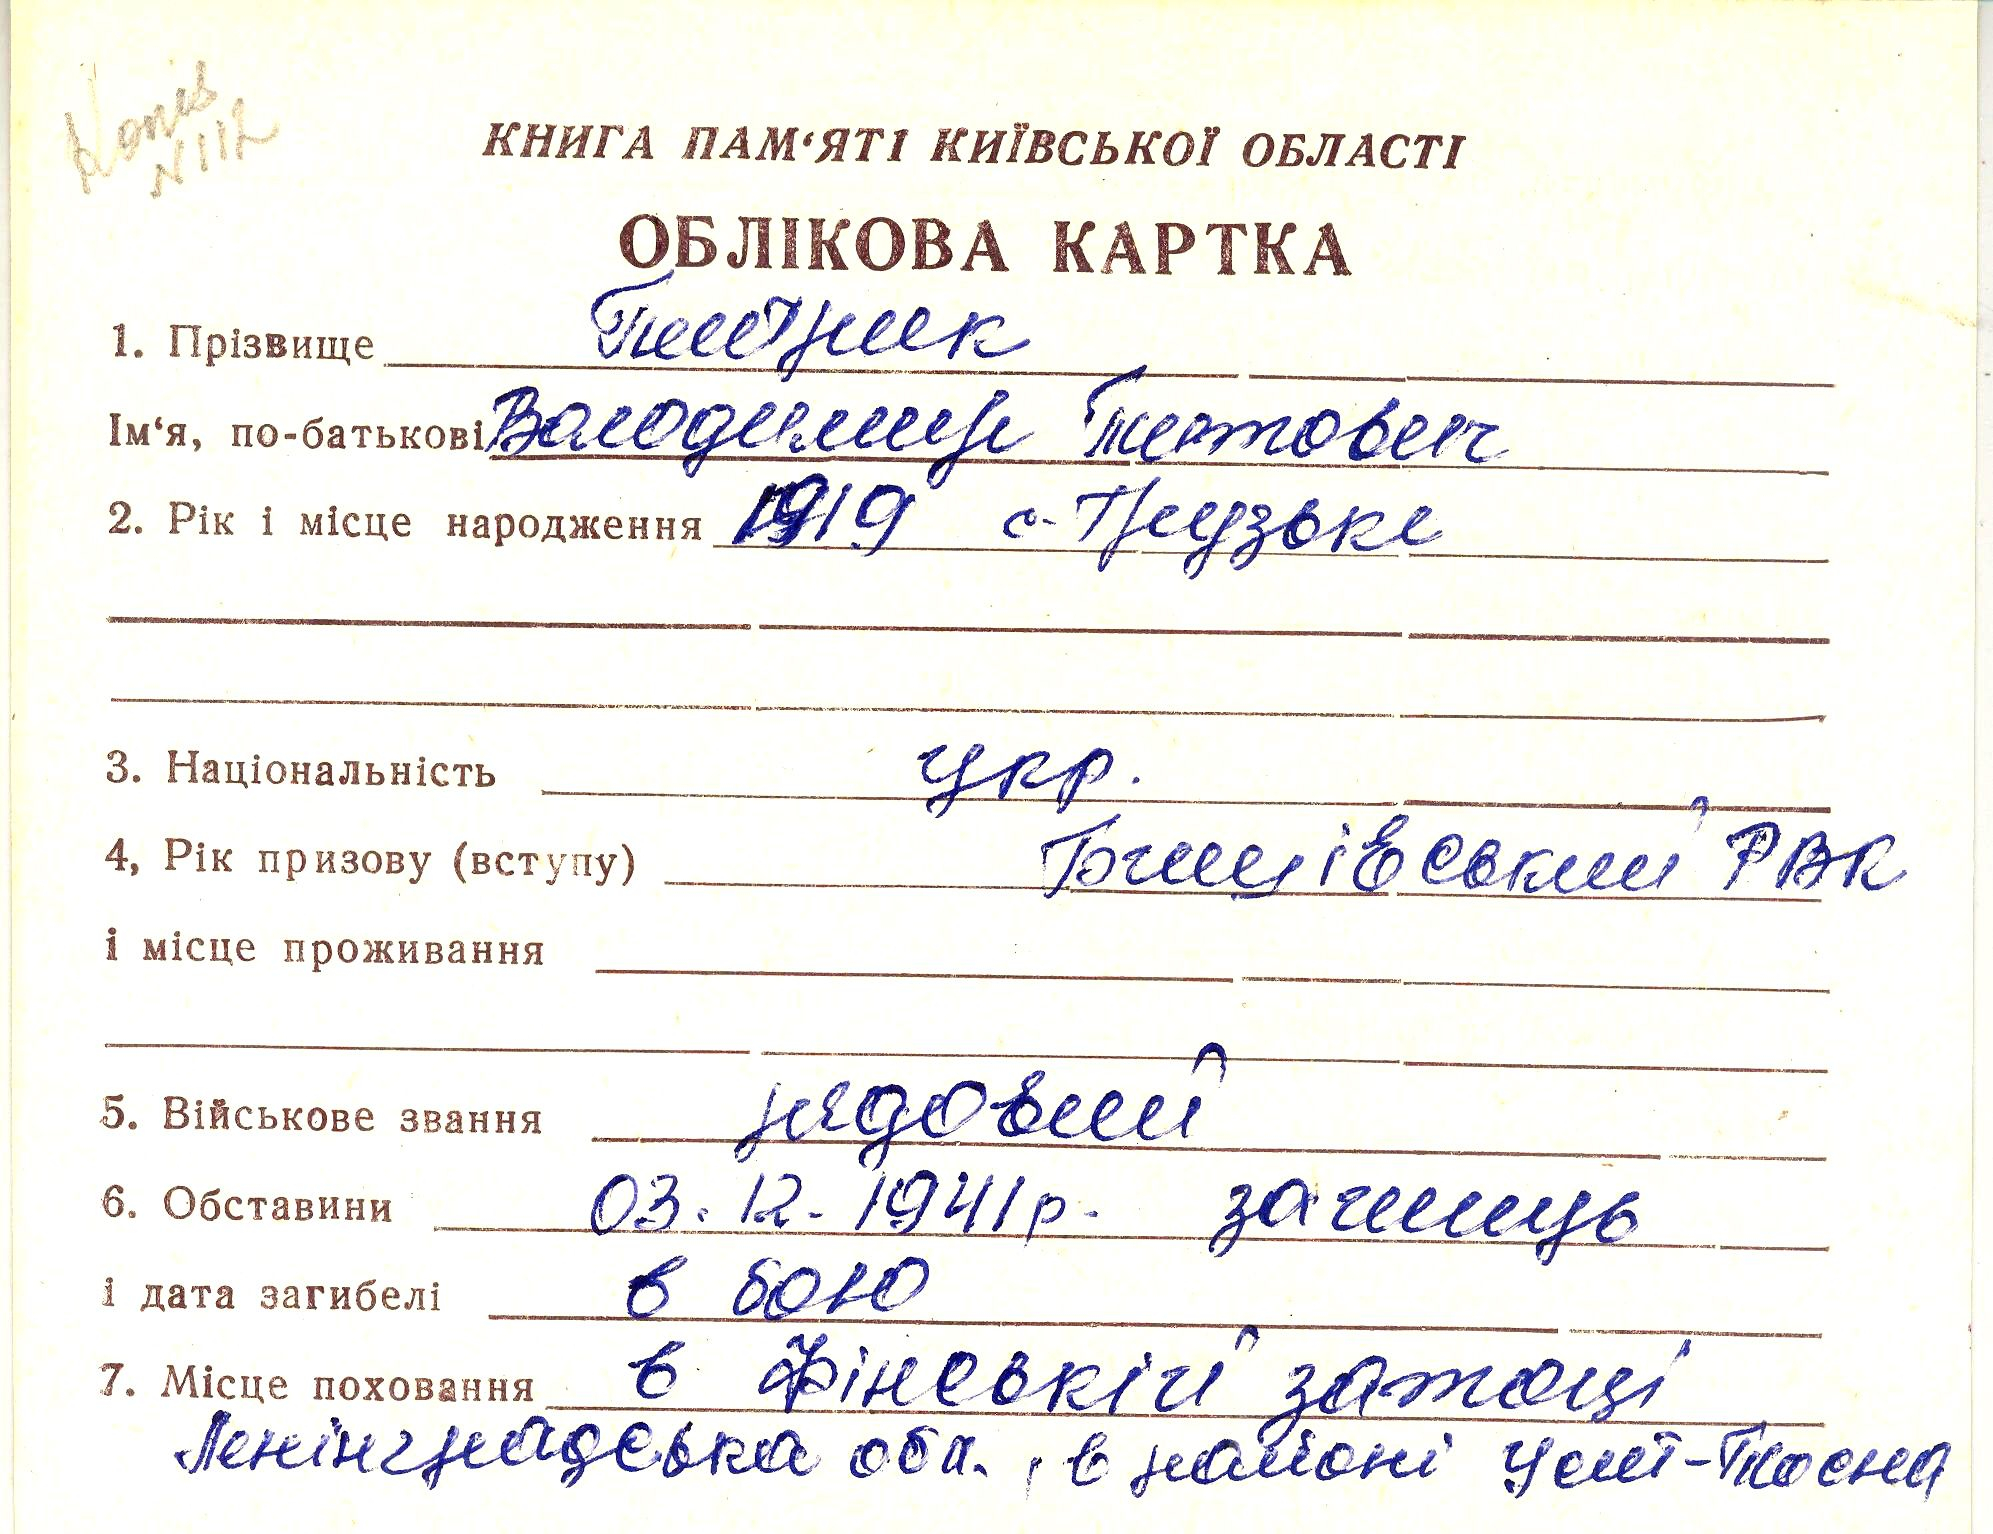 Копія
N 112
КНИГА ПАМ‘ЯТІ КИЇВСЬКОЇ ОБЛАСТІ
ОБЛІКОВА КАРТКА
1. Прізвище
Ім‘я, по-батькові Володимир Титович
2. Рік і місце народження 1919 с. Прузьки
3. Національність укр.
4, Рік призову (вступу) РВК
і місце проживання
5. Військове звання рядовий
6. Обставини 03.12.1941р. загинув
і дата загибелі в бою
7. Місце поховання в Фінській затоці
Ленінградська обл., в районі Усть-Тосна